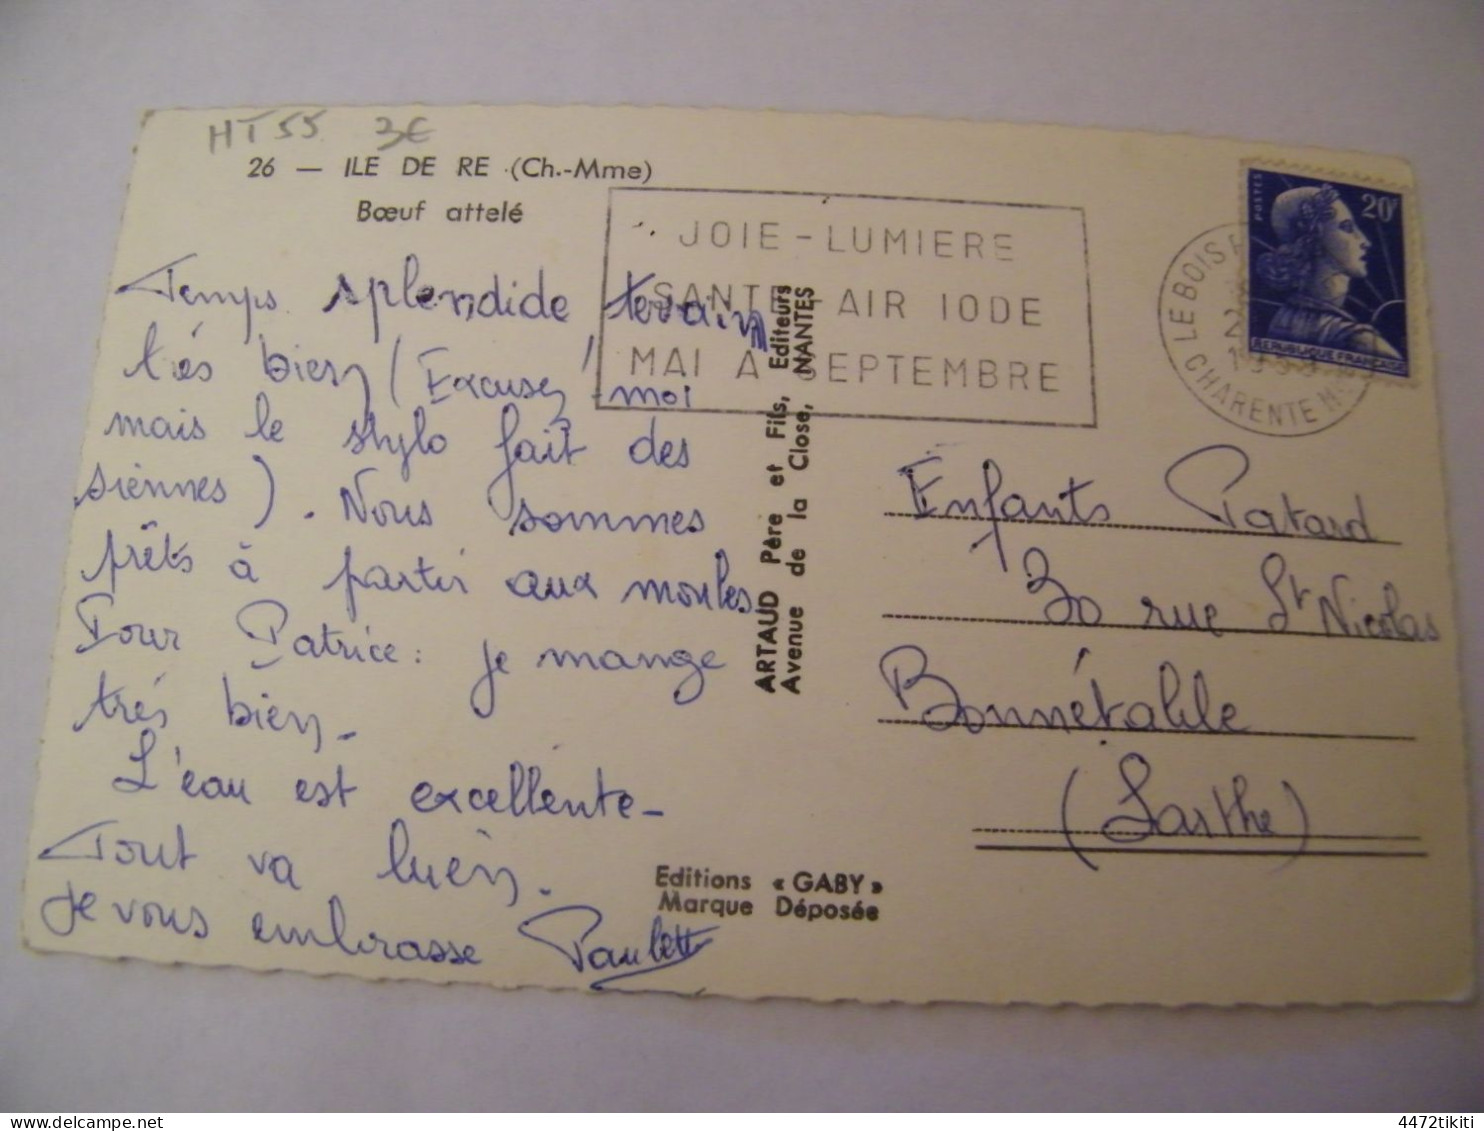 HT 55 3€
26 — ILE DE RE (Ch.-Mme)
Bœuf attelé
Temps splendide, terrain
très bien (Excusez moi
mais le stylo fait des
siennes). Nous sommes
prêts à partir aux moules.
Pour Patrice : je mange
très bien.
L'eau est excellente.
Tout va bien.
Je vous embrasse Paulette
JOIE - LUMIERE
SANTE AIR IODE
MAI A SEPTEMBRE
ARTAUD Père et Fils, Editeurs
Avenue de la Close, NANTES
Editions « GABY »
Marque Déposée
LE BOIS
CHARENTE
POSTES 20F
REPUBLIQUE FRANCAISE
Enfants Patard
30 rue St Nicolas
Bonnétable
(Sarthe)
4472tikiti
delcampe.net